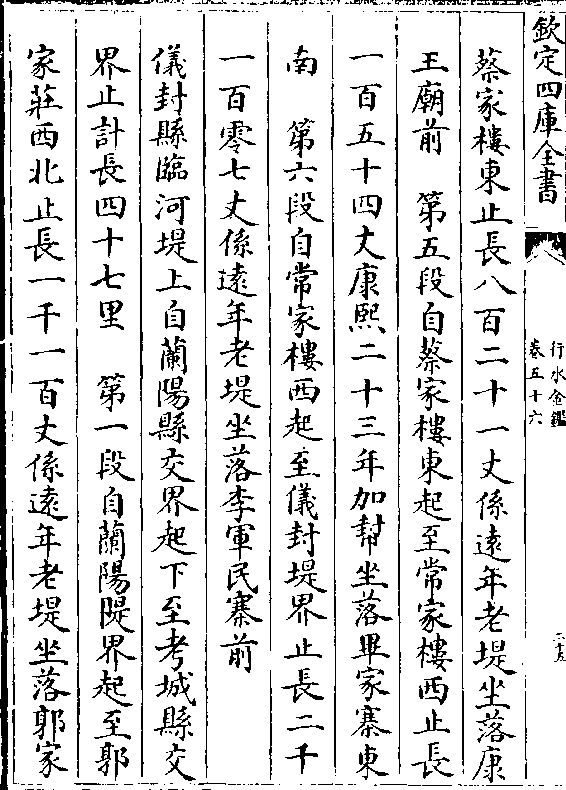 欽定四庫全書
行水金鑑
卷五十六
二十五
蔡家樓東止長八百二十一丈係遠年老堤坐落康
王廟前　第五段自蔡家樓東起至常家樓西止長
一百五十四丈康熙二十三年加幇坐落畢家寨東
南　第六段自常家樓西起至儀封堤界止長二千
一百零七丈係遠年老堤坐落李軍民寨前
儀封縣臨河堤上自蘭陽縣交界起下至考城縣交
界止計長四十七里　第一段自蘭陽堤界起至郭
家莊西北止長一千一百丈係遠年老堤坐落郭家